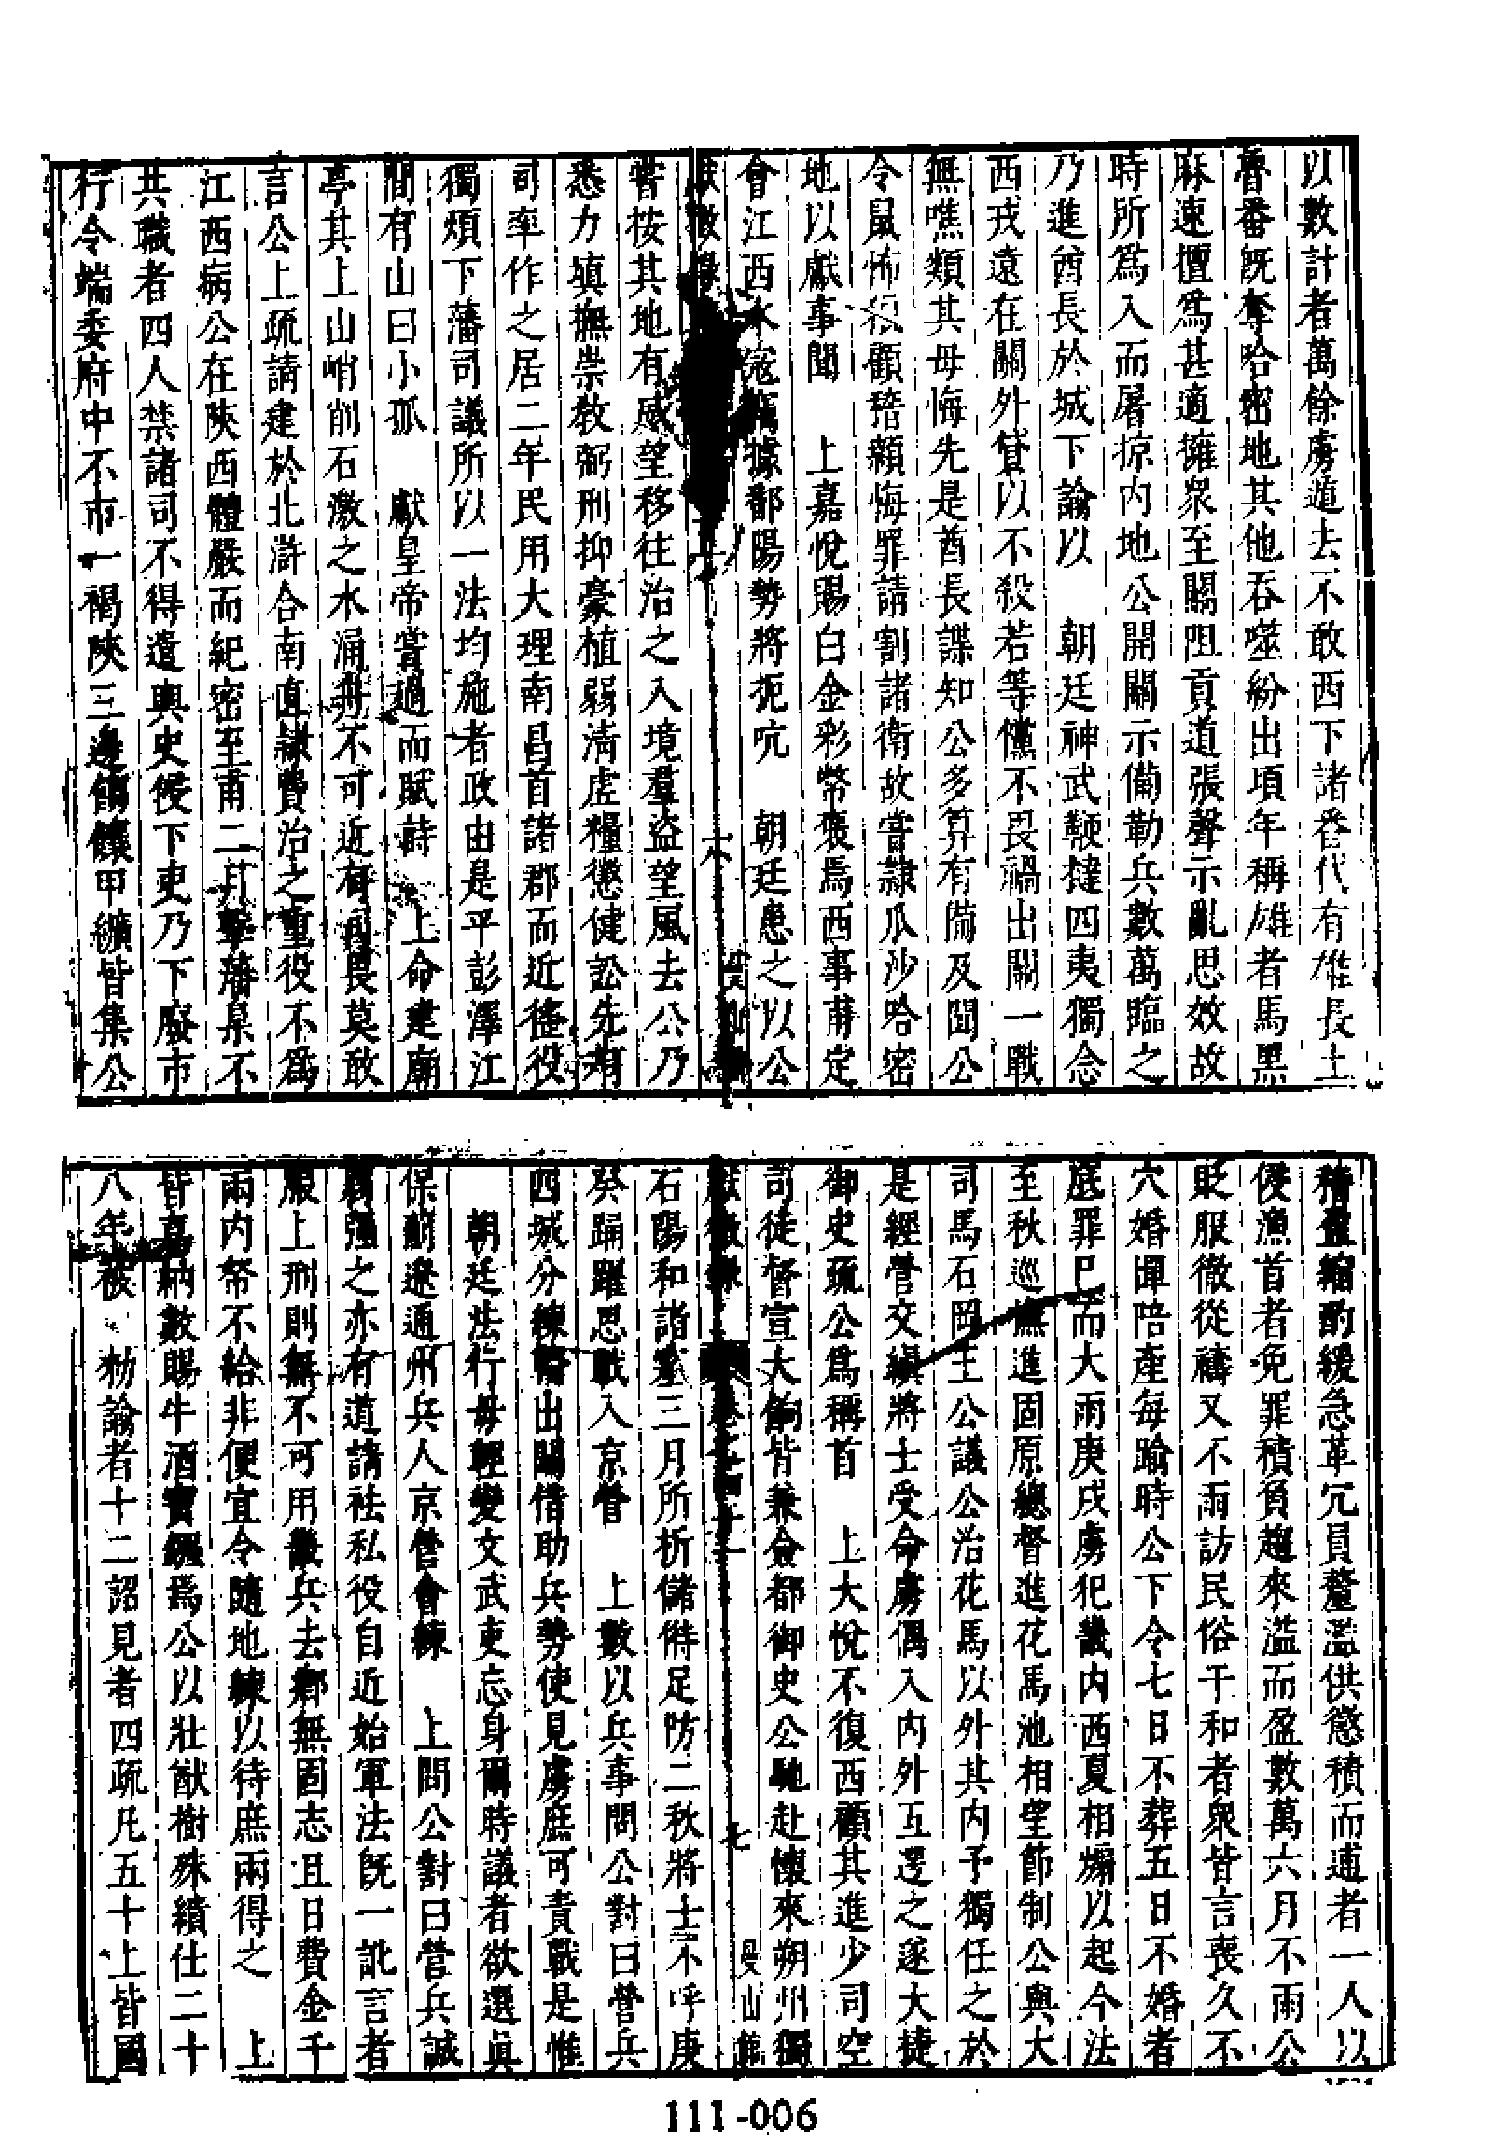 以數計者萬餘虜遁去不敢西下諸番代有雄長土
魯番既奪哈密地其他吞噬紛出頃年稱雄者馬黑
麻速壇爲甚適擁衆至關阻貢道張聲示亂思效故
時所爲入而屠掠內地公開關示備勒兵數萬臨之
乃進酋長於城下諭以　朝廷神武鞭撻四夷獨念
西戎遠在關外貸以不殺若等儻不畏禍出關一戰
無噍類其毋悔先是酋長諜知公多算有備及聞公
令鼠怖狼顧稽顙悔罪請割諸衛故嘗隸瓜沙哈密
地以獻事聞　上嘉悅賜白金彩幣張馬西事甫定
會江西水寇竊據鄱陽勢將扼吭　朝廷患之以公
嘗按其地有威望移往治之入境羣盜望風去公乃
悉力填撫崇敎弼刑抑豪植弱淸虛糧懲健訟先有
司率作之居二年民用大理南昌首諸郡而近徭役
獨煩下藩司議所以一法均施者政由是平彭澤江
間有山曰小孤　獻皇帝嘗過而賦詩　上命建廟
亭其上山峭削石激之水涌舟不可近有司畏莫敢
言公上疏請建於北滸合南直隷費治之重役不爲
江西病公在陝西體嚴而紀密至甫二月擧藩臬不
共職者四人禁諸司不得遣輿史侵下吏乃下廢市
行令端委府中不市一褐陝三邊餉饟甲纊皆集公
稽盈縮酌緩急革冗員釐濫供慾積而逋者一人以
侵漁首者免罪積負趨來溢而盈數萬六月不雨公
貶服徹從禱又不雨訪民俗于和者衆皆言喪久不
穴婚憚陪產每踰時公下令七日不葬五日不婚者
底罪已而大雨庚戌虜犯畿內西夏相煽以起今法
至秋巡撫進固原總督進花馬池相望節制公與大
司馬石岡王公議公治花馬以外其內予獨任之於
是經營文縝將士受命虜偶入內外互遌之遂大捷
御史疏公爲稱首　上大悅不復西顧其進少司空
司徒督宣大餉皆兼僉都御史公馳赴懷來朔州獨
石陽和諸塞三月所析儲偫足防二秋將士不呼庚
癸踊躍思戰入京營　上數以兵事問公對曰營兵
西城分練畧出賜借助兵勢使見虜庶可責戰是惟
朝廷法行毋輕變文武吏忘身爾時議者欲選眞
保薊遼通州兵人京營會練　上問公對曰營兵誠
羸强之亦有道請祛私役自近始軍法旣一訛言者
服上刑則無不可用徵兵去鄕無固志且日費金千
兩內帑不給非便宜令隨地練以待庶兩得之　上
皆嘉納數賜牛酒寶鏹焉公以壯猷樹殊績仕二十
八年被　勑諭者十二詔見者四疏凡五十上皆國
111-006